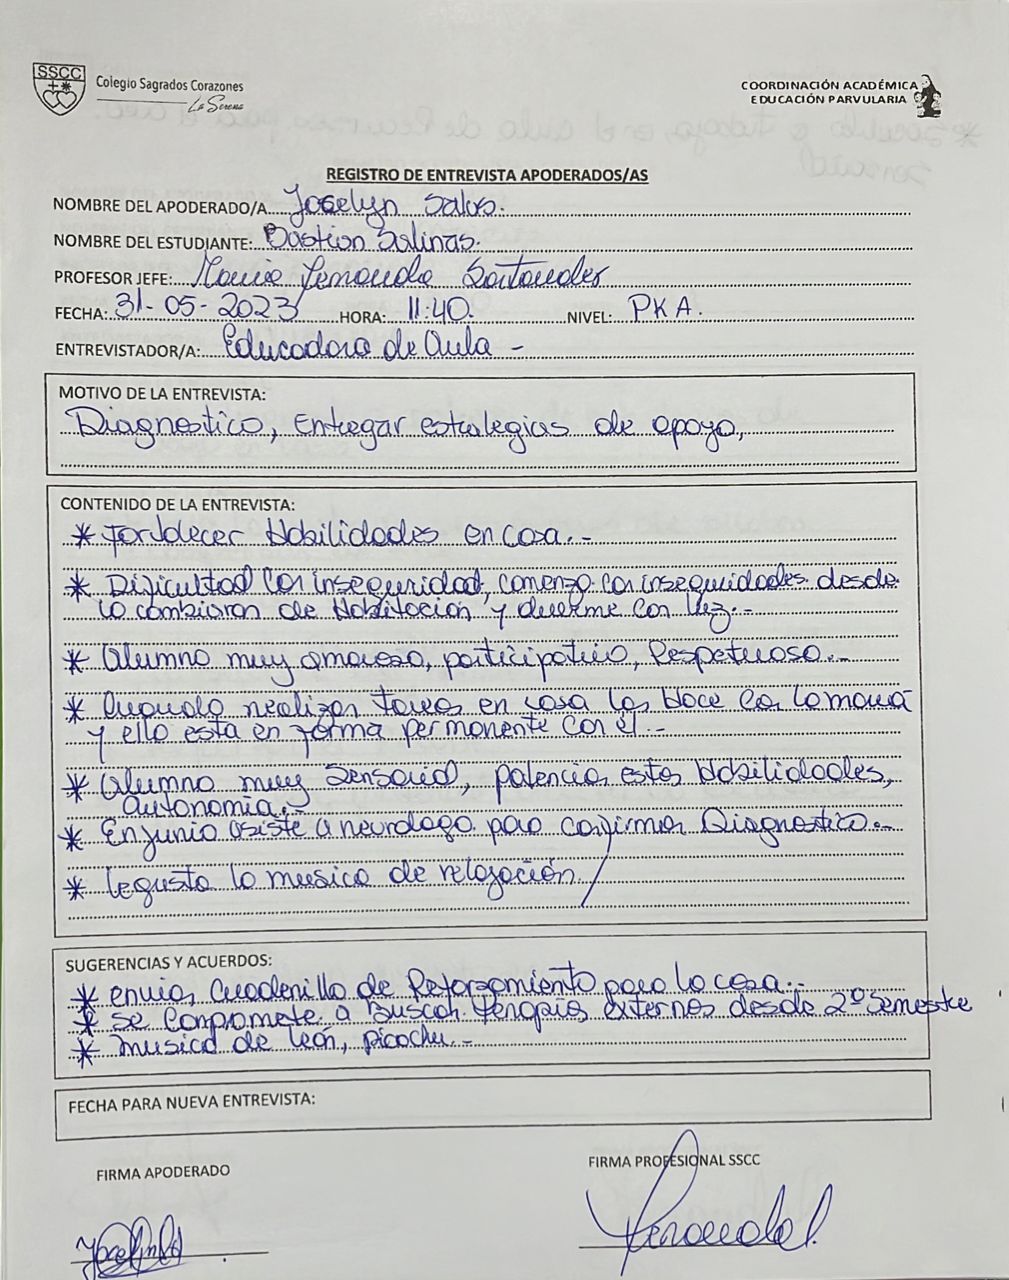 SSCC
Colegio Sagrados Corazones
La Serena
COORDINACIÓN ACADÉMICA
EDUCACIÓN PARVULARIA
REGISTRO DE ENTREVISTA APODERADOS/AS
NOMBRE DEL APODERADO/A Joselyn Salas.
NOMBRE DEL ESTUDIANTE: Bastian Salinas.
PROFESOR JEFE: Maria Fernanda Santander
FECHA: 31-05-2023 HORA: 11:40. NIVEL: PKA.
ENTREVISTADOR/A: Educadora de Aula -
MOTIVO DE LA ENTREVISTA:
Diagnostico, Entregar estrategias de apoyo,
CONTENIDO DE LA ENTREVISTA:
* Fortalecer Habilidades en casa.-
* Dificultad con inseguridad, comenzo con inseguidades desde
lo cambiaron de Habitacion y duerme con luz.-
* Alumno muy amoroso, participativo, Respetuoso.-
* Cuando realizan tarea en casa las Hace con la mamá
y ella esta en forma permanente con el.-
* Alumno muy Sensorial, potenciar estas Habilidades,
autonomia.-
* En junio asiste a neurologo para confirmar Diagnostico.-
* le gusta la musica de relajación.
SUGERENCIAS Y ACUERDOS:
* enviar Cuadernillo de Reforzamiento para la casa.-
* se Compromete a Buscar Terapias externos desde 2º Semestre
* musica de león, picachu.-
FECHA PARA NUEVA ENTREVISTA:
FIRMA APODERADO
FIRMA PROFESIONAL SSCC